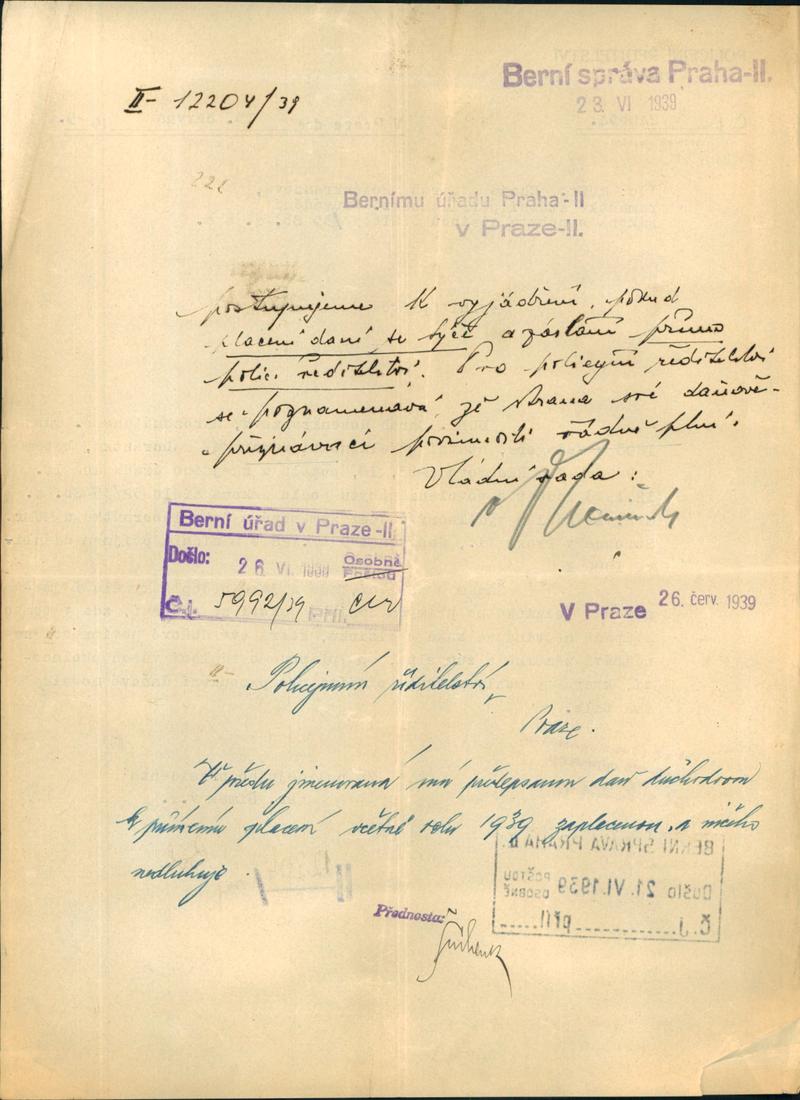 II- 12204/39
Berní správa Praha-II.
23 VI 1939
222
Bernímu úřadu Praha-II
v Praze-II.
postupujeme k vyjádření, pokud
placení daní se týče a zaslání přímo
polic. ředitelství. Pro policejní ředitelství
se poznamenává, že strana své daňově-
přiznávací povinnosti řádně plní.
Vládní rada:
Berní úřad v Praze-II.
Došlo: 26 VI. 1939 Osobně
Poštou
Č.j. 5992/39 Příl.
V Praze 26. červ. 1939
Policejnímu ředitelství,
Praze.
V předu jmenovaná má předepsanou daň důchodovou
k přímému placení včetně roku 1939 zaplacenou a ničeho
nedluhuje.
BERNÍ SPRÁVA PRAHA II.
Došlo 21. VI. 1939 POŠTOU
OSOBNĚ
Č.j. příl.
Přednosta: